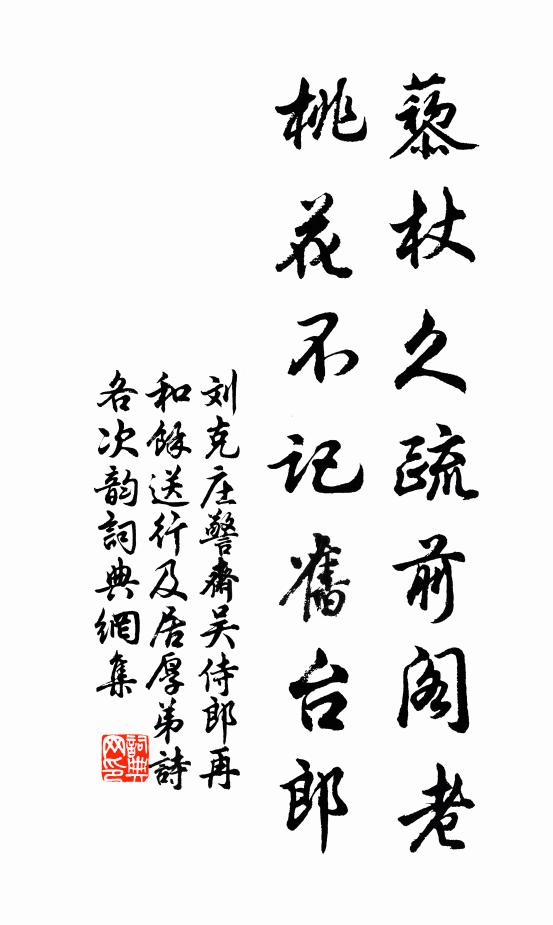 藜杖久疏前阁老
桃花不记舊台郎
刘克庄警齋吴侍郎再
和餘送行及居厚弟詩
各次韵詞典網集
詞典网印